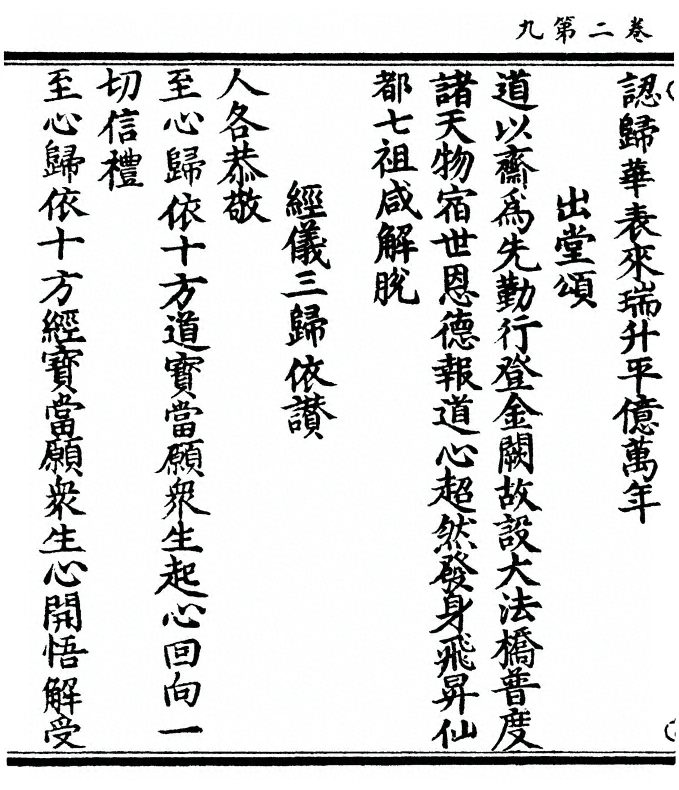 卷二第九
認歸華表來瑞升平億萬年
出堂頌
道以齋爲先勤行登金闕故設大法橋普度
諸天物宿世恩德報道心超然發身飛昇仙
都七祖咸解脫
經儀三歸依讚
人各恭敬
至心歸依十方道寶當願衆生起心回向一
切信禮
至心歸依十方經寶當願衆生心開悟解受